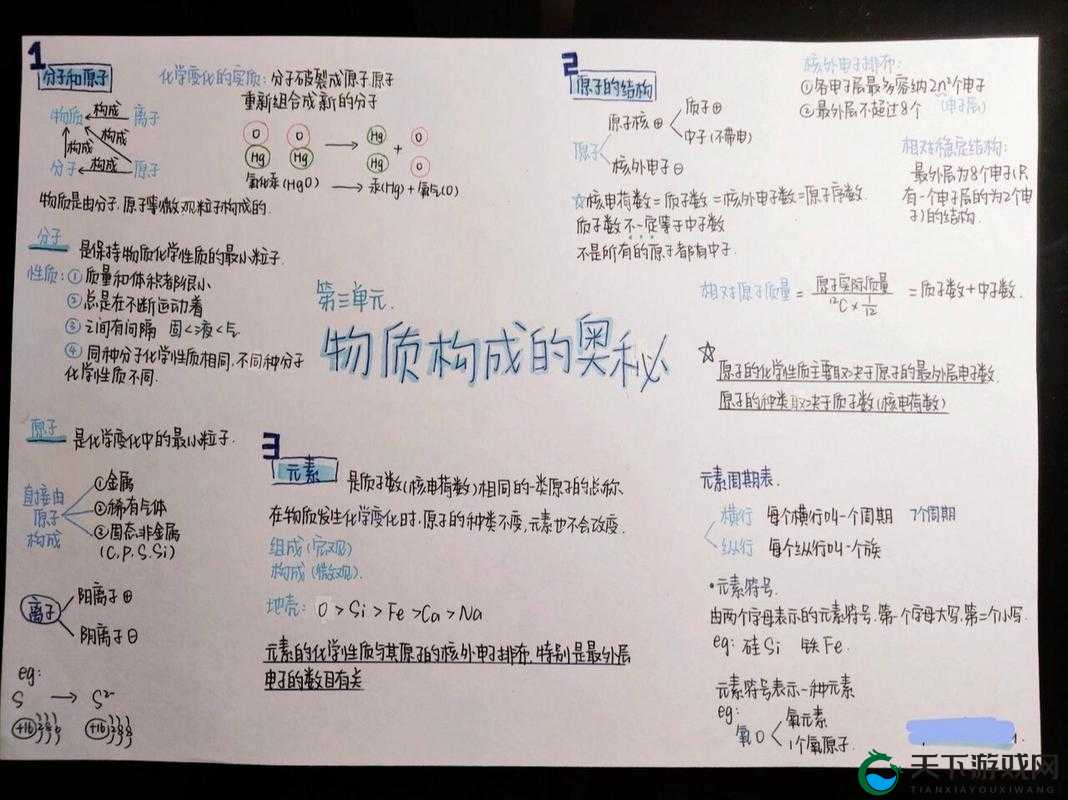 1
分子和原子
化学变化的实质:分子破裂成原子原子
重新组合成新的分子
物质 构成 离子
构成 构成
分子 构成 原子
O O Hg O
Hg Hg Hg + O
氧化汞(HgO) 汞(Hg)+氧气(O)
物质是由分子,原子等微观粒子构成的.
分子 是保持物质化学性质的最小粒子.
性质:①质量和体积都很小
②总是在不断运动着
③之间有间隔 固<液<气
④同种分子化学性质相同,不同种分子
化学性质不同.
原子 是化学变化中的最小粒子.
直接由
原子
构成
①金属
②稀有气体
③固态非金属
(C,P,S,Si)
离子
阳离子⊕
阴离子⊖
eg:
S → S²⁻
+16 2 8 6 +16 2 8 8
第三单元.
物质构成的奥秘
2
原子的结构
原子
原子核⊕
质子⊕
中子(不带电)
核外电子⊖
核外电子排布:
①各电子层最多容纳2n²个电子
②最外层不超过8个 (电子层)
相对稳定结构:
最外层为8个电子(只
有一个电子层的为2个电
子)的结构.
☆核电荷数=质子数=核外电子数=原子序数.
质子数不一定等于中子数
不是所有的原子都有中子.
相对原子质量 = 原子实际质量 / ¹²C × 1/12 = 质子数+中子数.
☆
原子的化学性质主要取决于原子的最外层电子数.
原子的种类取决于质子数(核电荷数)
3
元素 是质子数(核电荷数)相同的一类原子的总称.
在物质发生化学变化时,原子的种类不变,元素也不会改变.
组成(宏观)
构成(微观).
地壳: O > Si > Fe > Ca > Na
元素的化学性质与其原子的核外电子排布,特别是最外层
电子的数目有关
元素周期表.
横行 每个横行叫一个周期 7个周期
纵行 每个纵行叫一个族
•元素符号.
由两个字母表示的元素符号.第一个字母大写,第二个小写.
eg:硅Si 铁Fe.
元素符号表示一种元素
eg:
氧O
氧元素
1个氧原子.
天下游戏网
TIANXIAYOUXIWANG